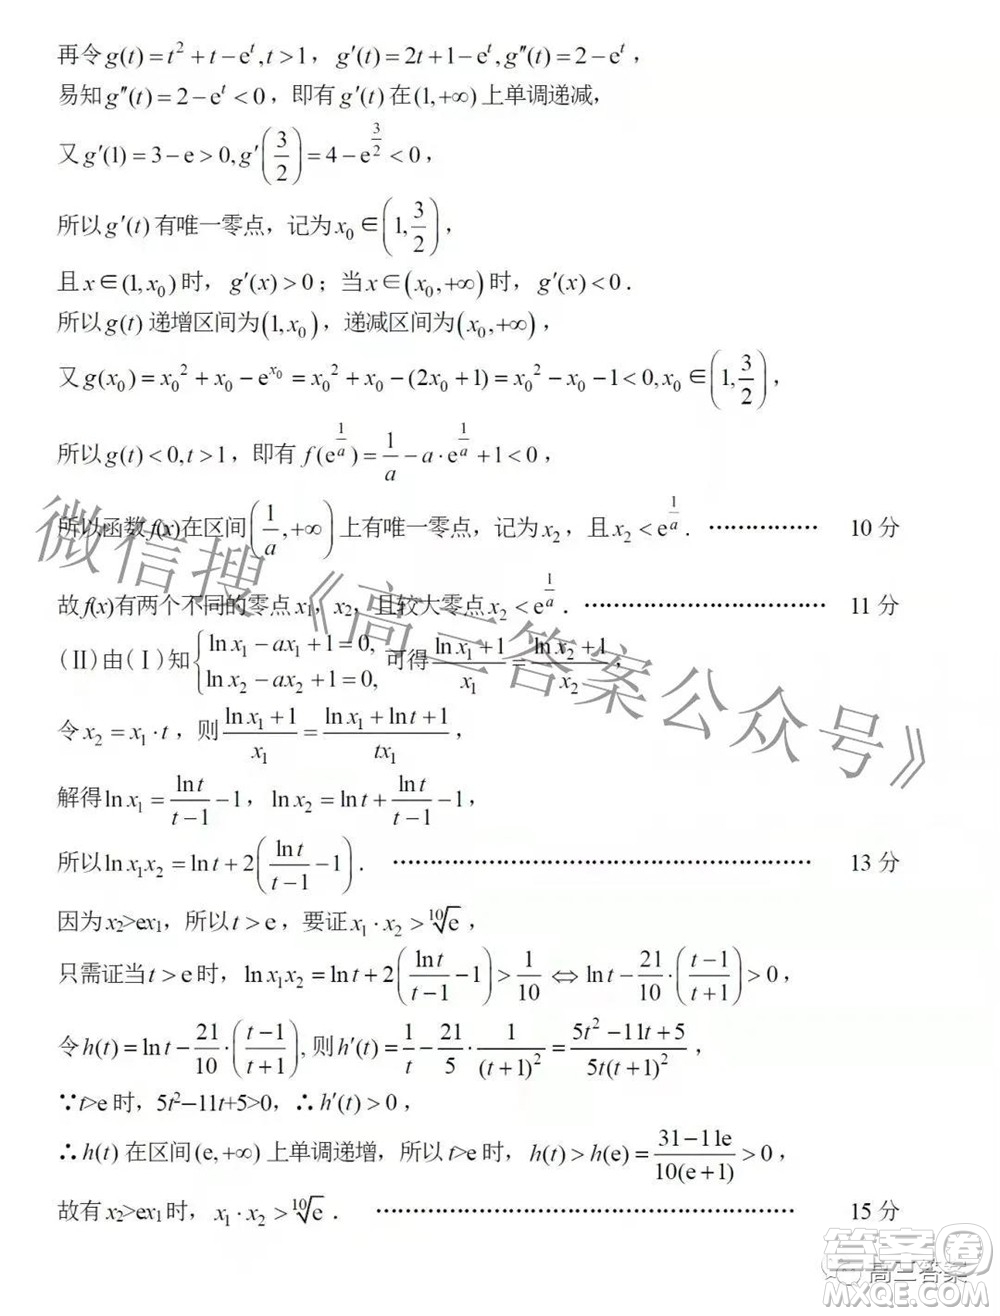 再令g(t)=t²+t−eᵗ,t>1，g′(t)=2t+1−eᵗ,g″(t)=2−eᵗ，
易知g″(t)=2−eᵗ<0，即有g′(t)在(1,+∞)上单调递减，
又g′(1)=3−e>0,g′(3/2)=4−e^(3/2)<0，
所以g′(t)有唯一零点，记为x₀∈(1,3/2)，
且x∈(1,x₀)时，g′(x)>0；当x∈(x₀,+∞)时，g′(x)<0．
所以g(t)递增区间为(1,x₀)，递减区间为(x₀,+∞)，
又g(x₀)=x₀²+x₀−e^(x₀)=x₀²+x₀−(2x₀+1)=x₀²−x₀−1<0,x₀∈(1,3/2)，
所以g(t)<0,t>1，即有f(e^(1/a))=1/a−a·e^(1/a)+1<0，
所以函数f(x)在区间(1/a,+∞)上有唯一零点，记为x₂，且x₂<e^(1/a)．……………10分
故f(x)有两个不同的零点x₁，x₂，且较大零点x₂<e^(1/a)．……………………………11分
(Ⅱ)由(Ⅰ)知{ln x₁−ax₁+1=0, ln x₂−ax₂+1=0, 可得(ln x₁+1)/x₁=(ln x₂+1)/x₂，
令x₂=x₁·t，则(ln x₁+1)/x₁=(ln x₁+ln t+1)/(tx₁)，
解得ln x₁=ln t/(t−1)−1，ln x₂=ln t+ln t/(t−1)−1，
所以ln x₁x₂=ln t+2(ln t/(t−1)−1)．……………………………………………………13分
因为x₂>ex₁，所以t>e，要证x₁·x₂>¹⁰√e，
只需证当t>e时，ln x₁x₂=ln t+2(ln t/(t−1)−1)>1/10⇔ln t−21/10·((t−1)/(t+1))>0，
令h(t)=ln t−21/10·((t−1)/(t+1)),则h′(t)=1/t−21/5·1/(t+1)²=(5t²−11t+5)/(5t(t+1)²)，
∵t>e时，5t²−11t+5>0，∴h′(t)>0，
∴h(t)在区间(e,+∞)上单调递增，所以t>e时，h(t)>h(e)=(31−11e)/(10(e+1))>0，
故有x₂>ex₁时，x₁·x₂>¹⁰√e．……………………………………………………15分
微信搜《高三答案公众号》
答案圈
高三答案
MXQE.COM